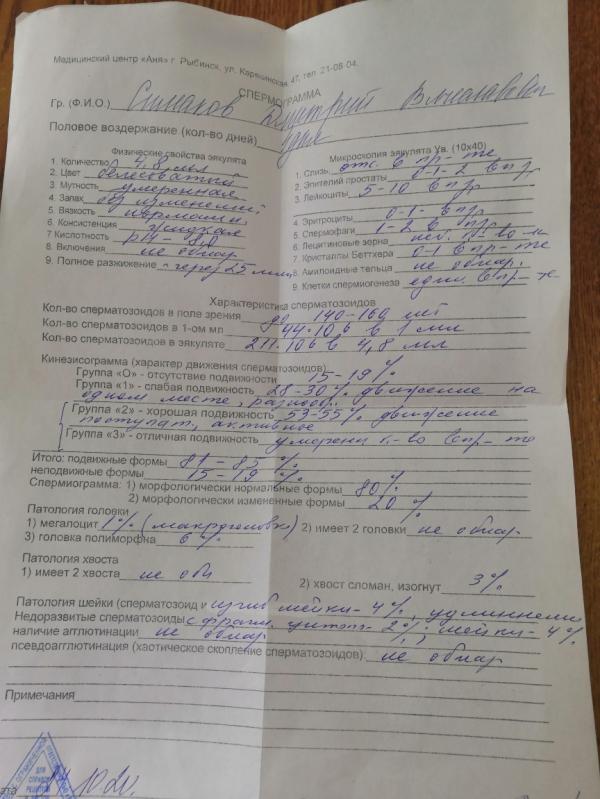 Медицинский центр «Аня» г. Рыбинск, ул. Карякинская, 47, тел. 21-08-04.
СПЕРМОГРАММА
Гр. (Ф.И.О.) Симаков Дмитрий
Половое воздержание (кол-во дней)
Физические свойства эякулята
1. Количество 4,8 мл
2. Цвет белесоватый
3. Мутность умеренная
4. Запах без изменений
5. Вязкость
6. Консистенция жидкая
7. Кислотность рН - 8,0
8. Включения не обнар
9. Полное разжижение через 25 мин
Микроскопия эякулята Ув. (10х40)
1. Слизь отс. в пр-те
2. Эпителий простаты 0-1-2 в пр.
3. Лейкоциты 5-10 в пр.
4. Эритроциты 0-1- в пр.
5. Спермофаги 1-2 в пр.
6. Лецитиновые зерна
7. Кристаллы Беттхера 0-1 в пр-те
8. Амилоидные тельца не обнар.
9. Клетки спермиогенеза един. в пр-те
Характеристика сперматозоидов
Кол-во сперматозоидов в поле зрения до 140-160 шт
Кол-во сперматозоидов в 1-ом мл 44·106 в 1 мл
Кол-во сперматозоидов в эякуляте 211·106 в 4,8 мл
Кинезисограмма (характер движения сперматозоидов)
Группа «О» - отсутствие подвижности 15-19%
Группа «1» - слабая подвижность 28-30% движение на
одном месте, разнообр.
Группа «2» - хорошая подвижность 53-55% движение
поступат, активное
Группа «3» - отличная подвижность умерен к-во в пр-те
Итого: подвижные формы 81-85%
неподвижные формы 15-19%
Спермиограмма: 1) морфологически нормальные формы 80%
2) морфологически измененные формы 20%
Патология головки
1) мегалоцит 1% (макроголовк) 2) имеет 2 головки не обнар
3) головка полиморфна 6%
Патология хвоста
1) имеет 2 хвоста не обн 2) хвост сломан, изогнут 3%
Патология шейки (сперматозоид и изгиб шейки - 4% удлиннени
Недоразвитые сперматозоиды с фрагм. цитопл - 2%; шейки - 4%
наличие агглютинации не обнар
псевдоагглютинация (хаотическое скопление сперматозоидов) не обнар
Примечания